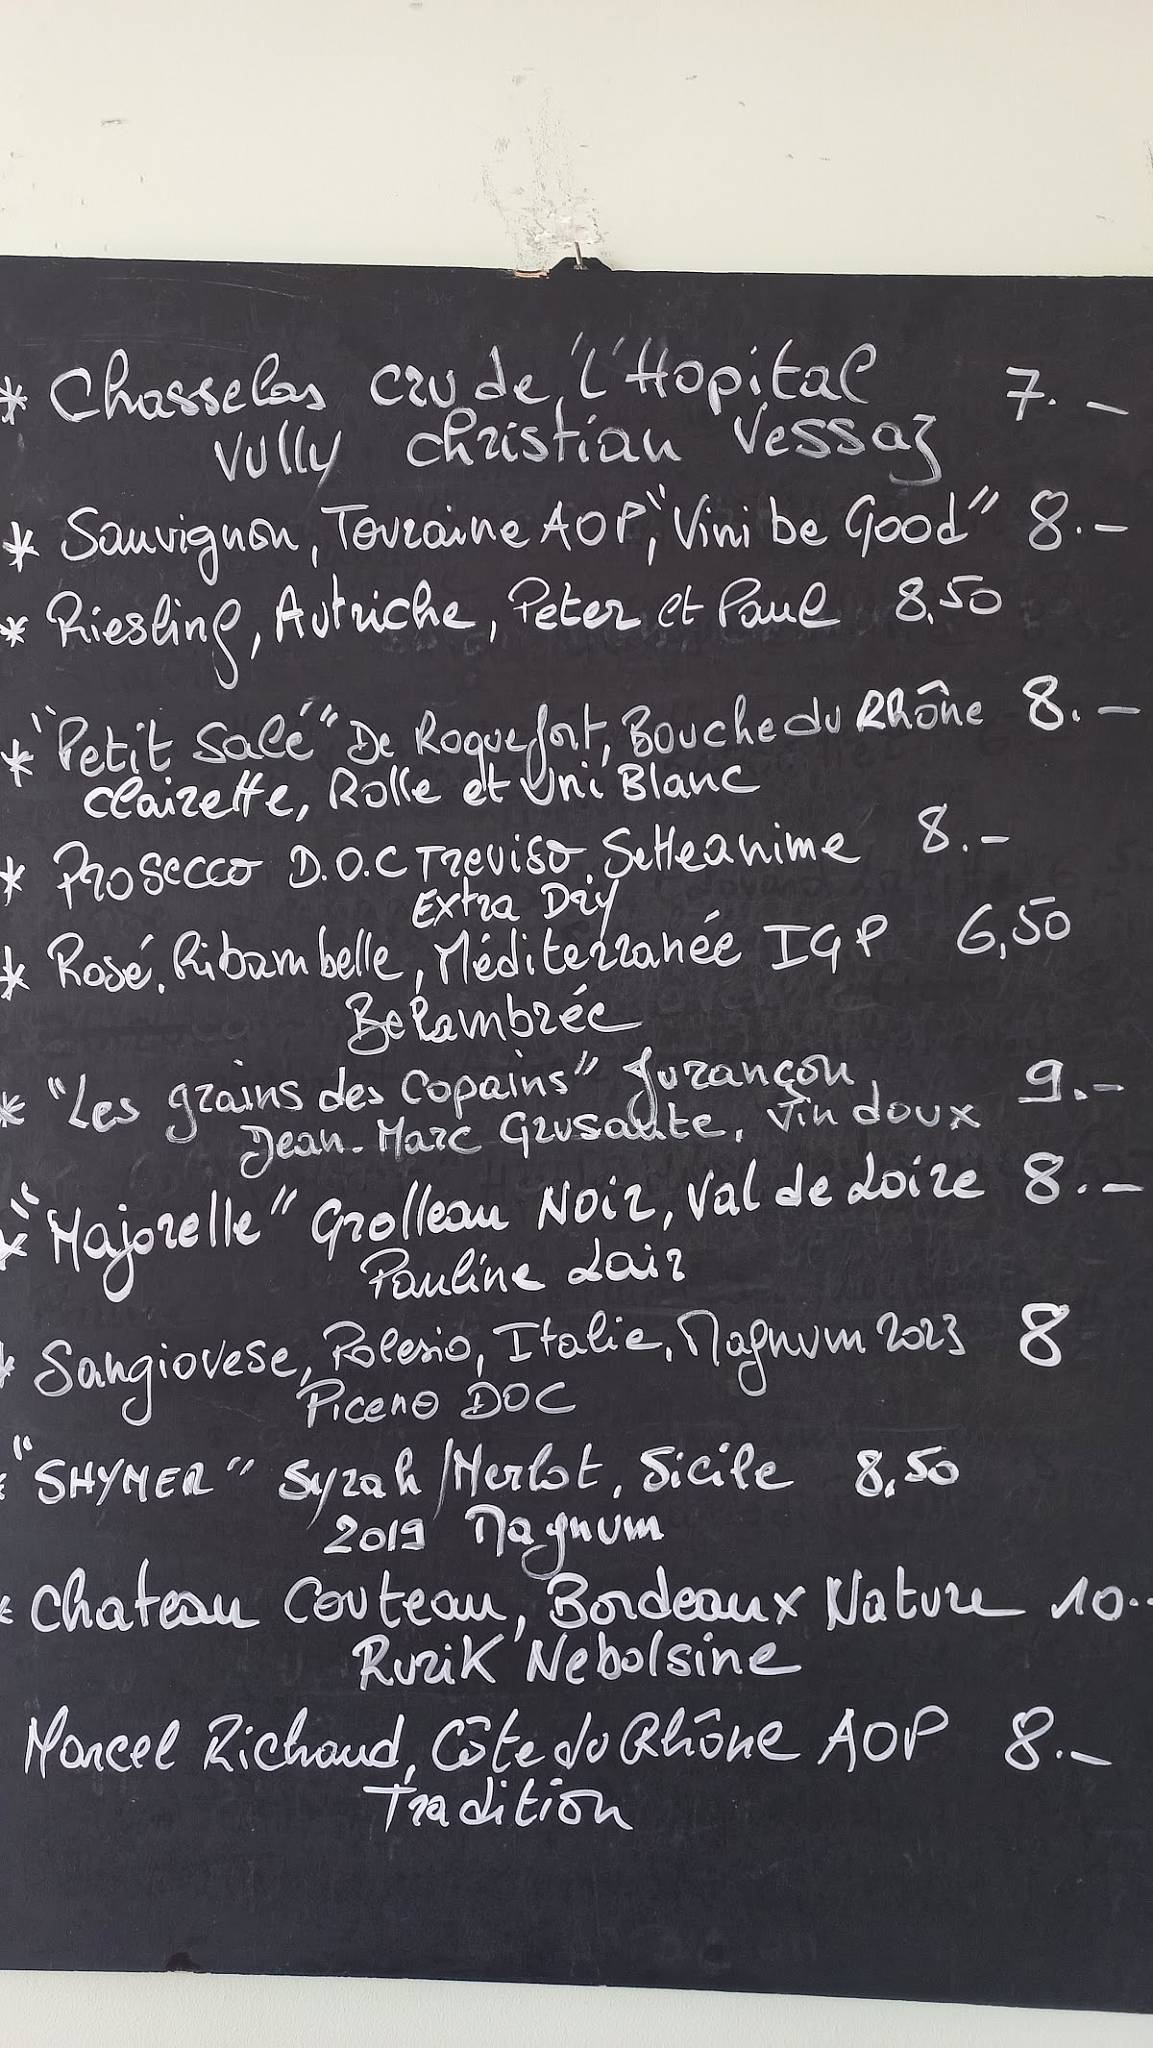 * Chasselas cru de l'Hopital 7.-
Vully Christian Vessaz
* Sauvignon, Touraine AOP, "Vini be Good" 8.-
* Riesling, Autriche, Peter et Paul 8.50
* "Petit Salé" De Roquefort, Bouche du Rhône 8.-
Clairette, Rolle et Uni Blanc
* Prosecco D.O.C Treviso Setteanime 8.-
Extra Dry
* Rosé. Ribambelle, Méditerranée IGP 6,50
Belambrée
* "Les grains des Copains" Jurançon, 9.-
Jean-Marc Grussaute, Vin doux
* "Majorelle" Grolleau Noir, Val de Loire 8.-
Pauline Lair
* Sangiovese, Polesio, Italie, Magnum 2023 8
Piceno DOC
* "SHYMER" Syrah/Merlot, Sicile 8,50
2019 Magnum
* Chateau Couteau, Bordeaux Nature 10.-
Rurik Nebolsine
Marcel Richaud, Côte du Rhône AOP 8.-
Tradition